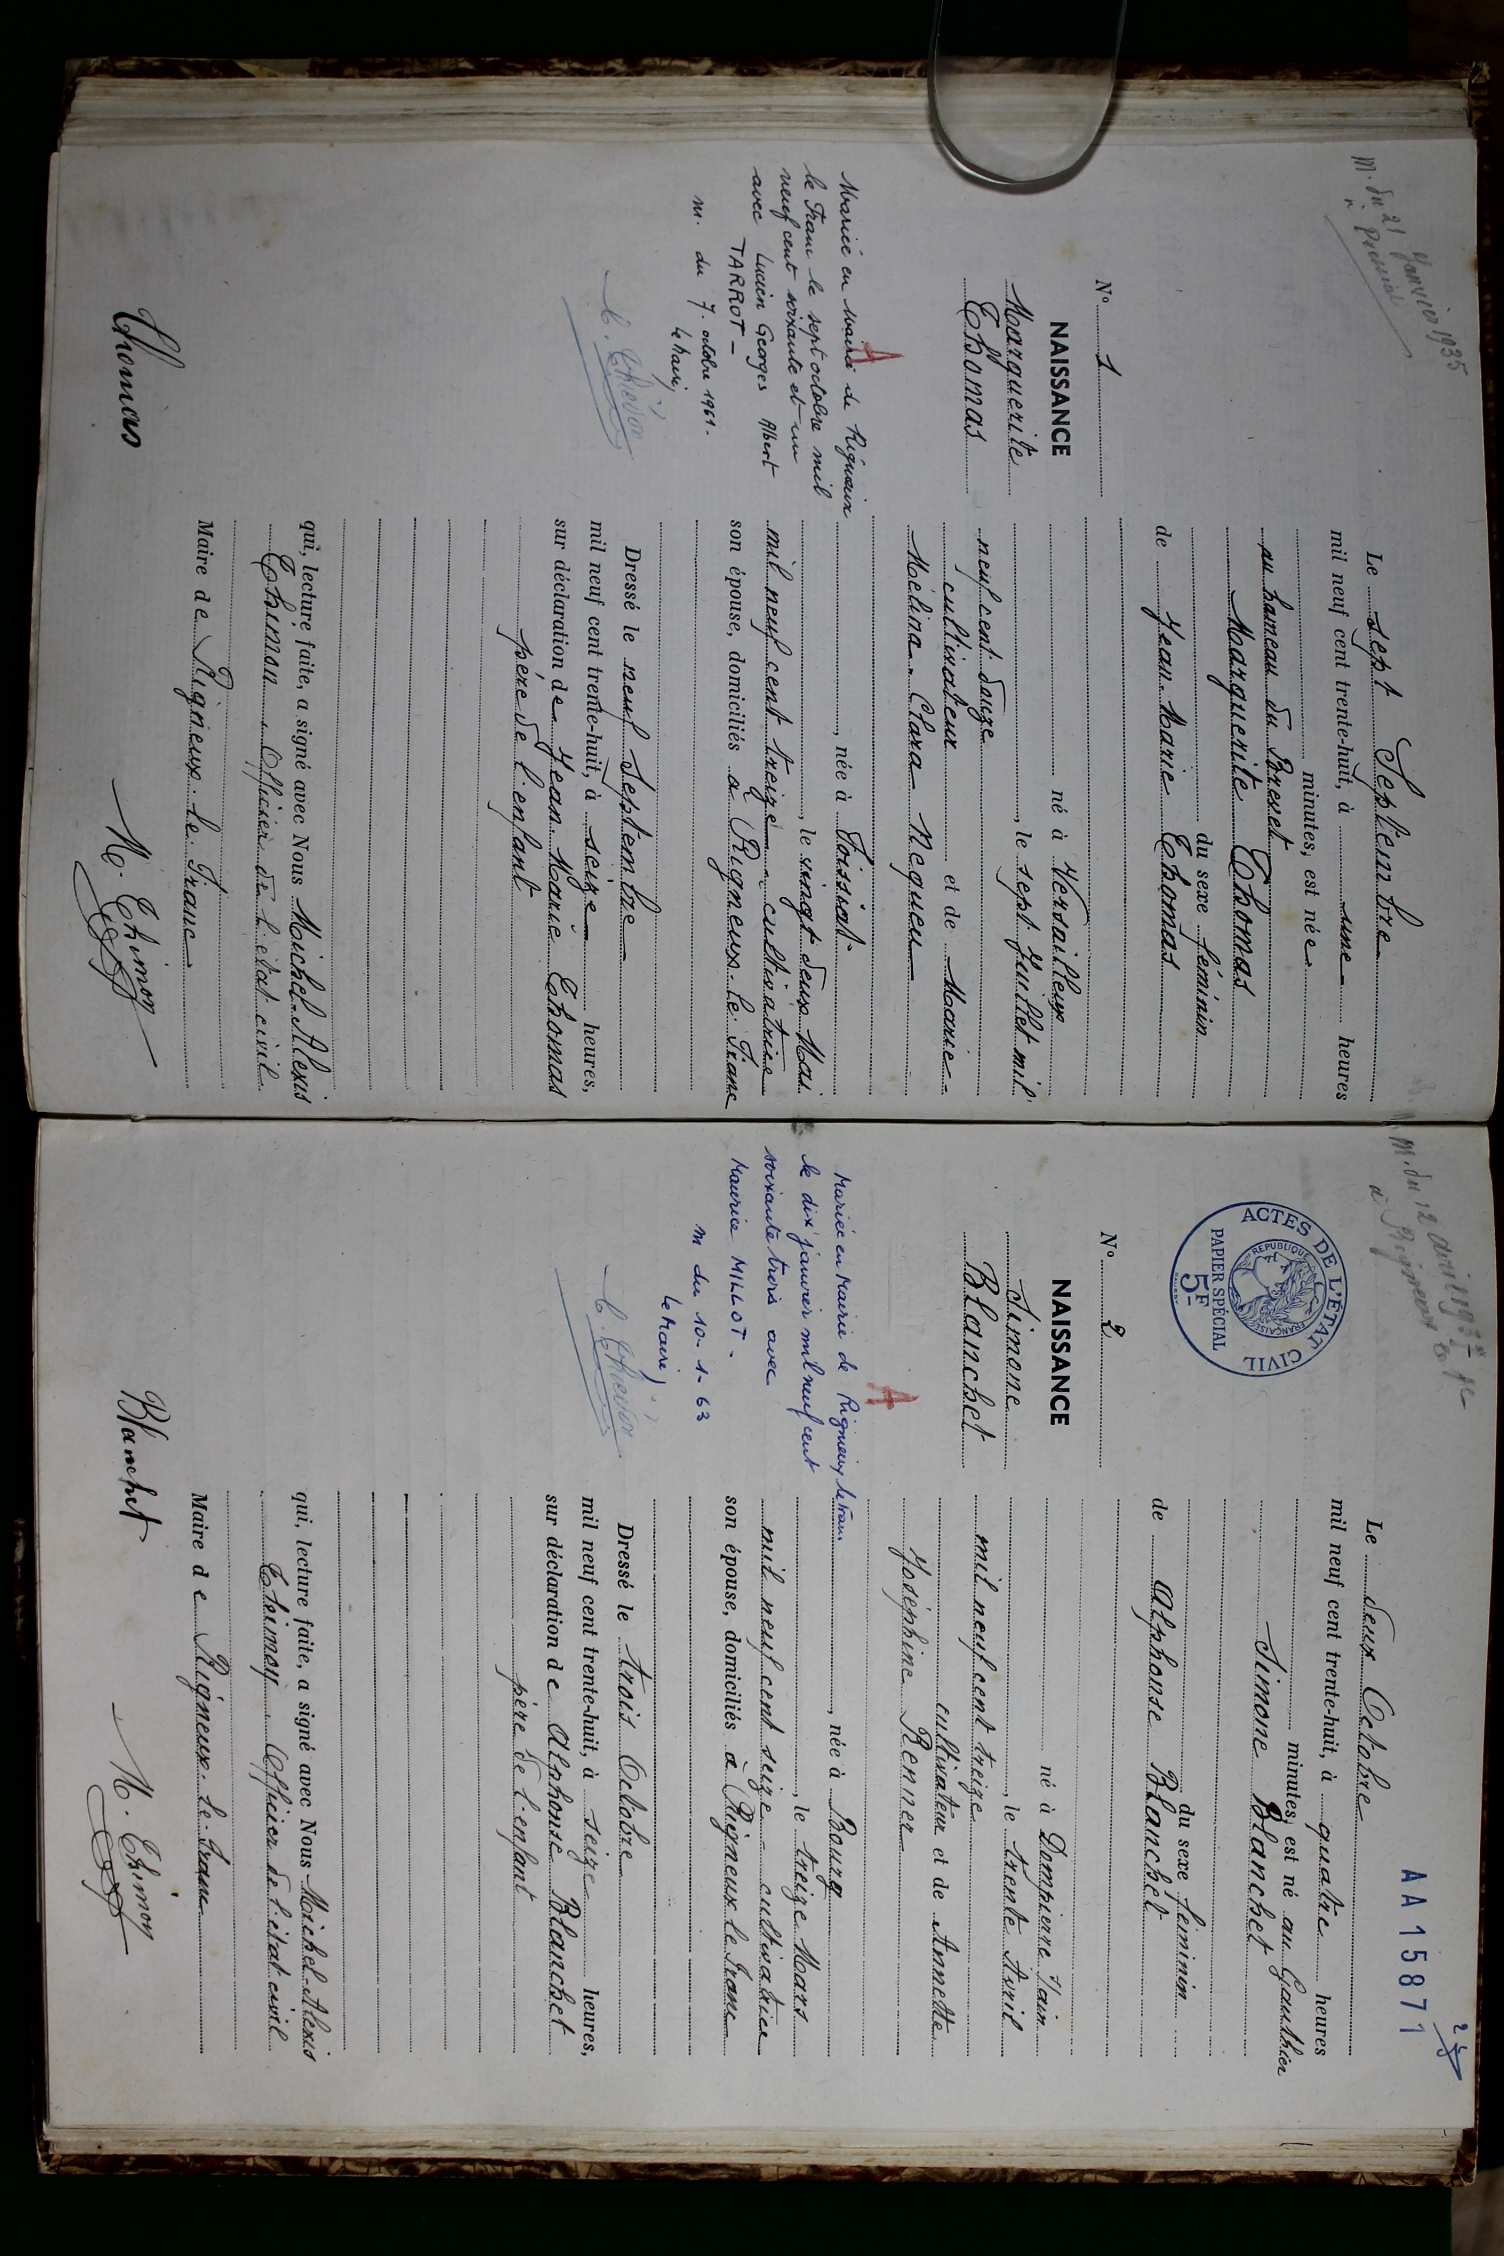 M. du 21 Janvier 1935
à
N° 1
NAISSANCE
Marguerite
Thomas
Mariée en mairie de Rigneux
le Franc le sept octobre mil
neuf cent soixante et un
avec Lucien Georges Albert
TARROT -
m. du 7. octobre 1961.
le Maire,
A
Le sept Septembre
mil neuf cent trente-huit, à une heures
minutes, est née
au hameau du Brevet
Marguerite Thomas
du sexe féminin
de Jean-Marie Thomas
né à Versailleux
, le sept Juillet mil
neuf cent douze
cultivateur et de Marie-
Mélina-Clara Nequeu
, née à Foissiat
, le vingt deux Mai
mil neuf cent treize - cultivatrice
son épouse, domiciliés à Rigneux-le-Franc
Dressé le neuf Septembre
mil neuf cent trente-huit, à seize heures,
sur déclaration de Jean-Marie Thomas
père de l'enfant
qui, lecture faite, a signé avec Nous Michel-Alexis
Thimon, Officier de l'état civil
Maire de Rigneux-le-Franc
Thomas
M. Thimon
M. du 12 avril 193
à Rigneux
ACTES DE L'ÉTAT CIVIL
REPUBLIQUE FRANÇAISE
PAPIER SPÉCIAL
5F
AA15871
N° 2
NAISSANCE
Simone
Blanchet
A
Mariée en Mairie de Rigneux le Franc
le dix janvier mil neuf cent
soixante trois avec
Maurice MILLOT -
m du 10-1-63
le Maire,
Le deux Octobre
mil neuf cent trente-huit, à quatre heures
minutes, est né au Gauthier
Simone Blanchet
du sexe féminin
de Alphonse Blanchet
né à Dompierre s/ain
, le trente Avril
mil neuf cent treize
cultivateur et de Annette
Joséphine Renner
, née à Bourg
, le treize Mars
mil neuf cent seize - cultivatrice
son épouse, domiciliés à Rigneux le Franc
Dressé le trois Octobre
mil neuf cent trente-huit, à seize heures,
sur déclaration de Alphonse Blanchet
père de l'enfant
qui, lecture faite, a signé avec Nous Michel-Alexis
Thimon, Officier de l'état civil
Maire de Rigneux-le-Franc
Blanchet
M. Thimon